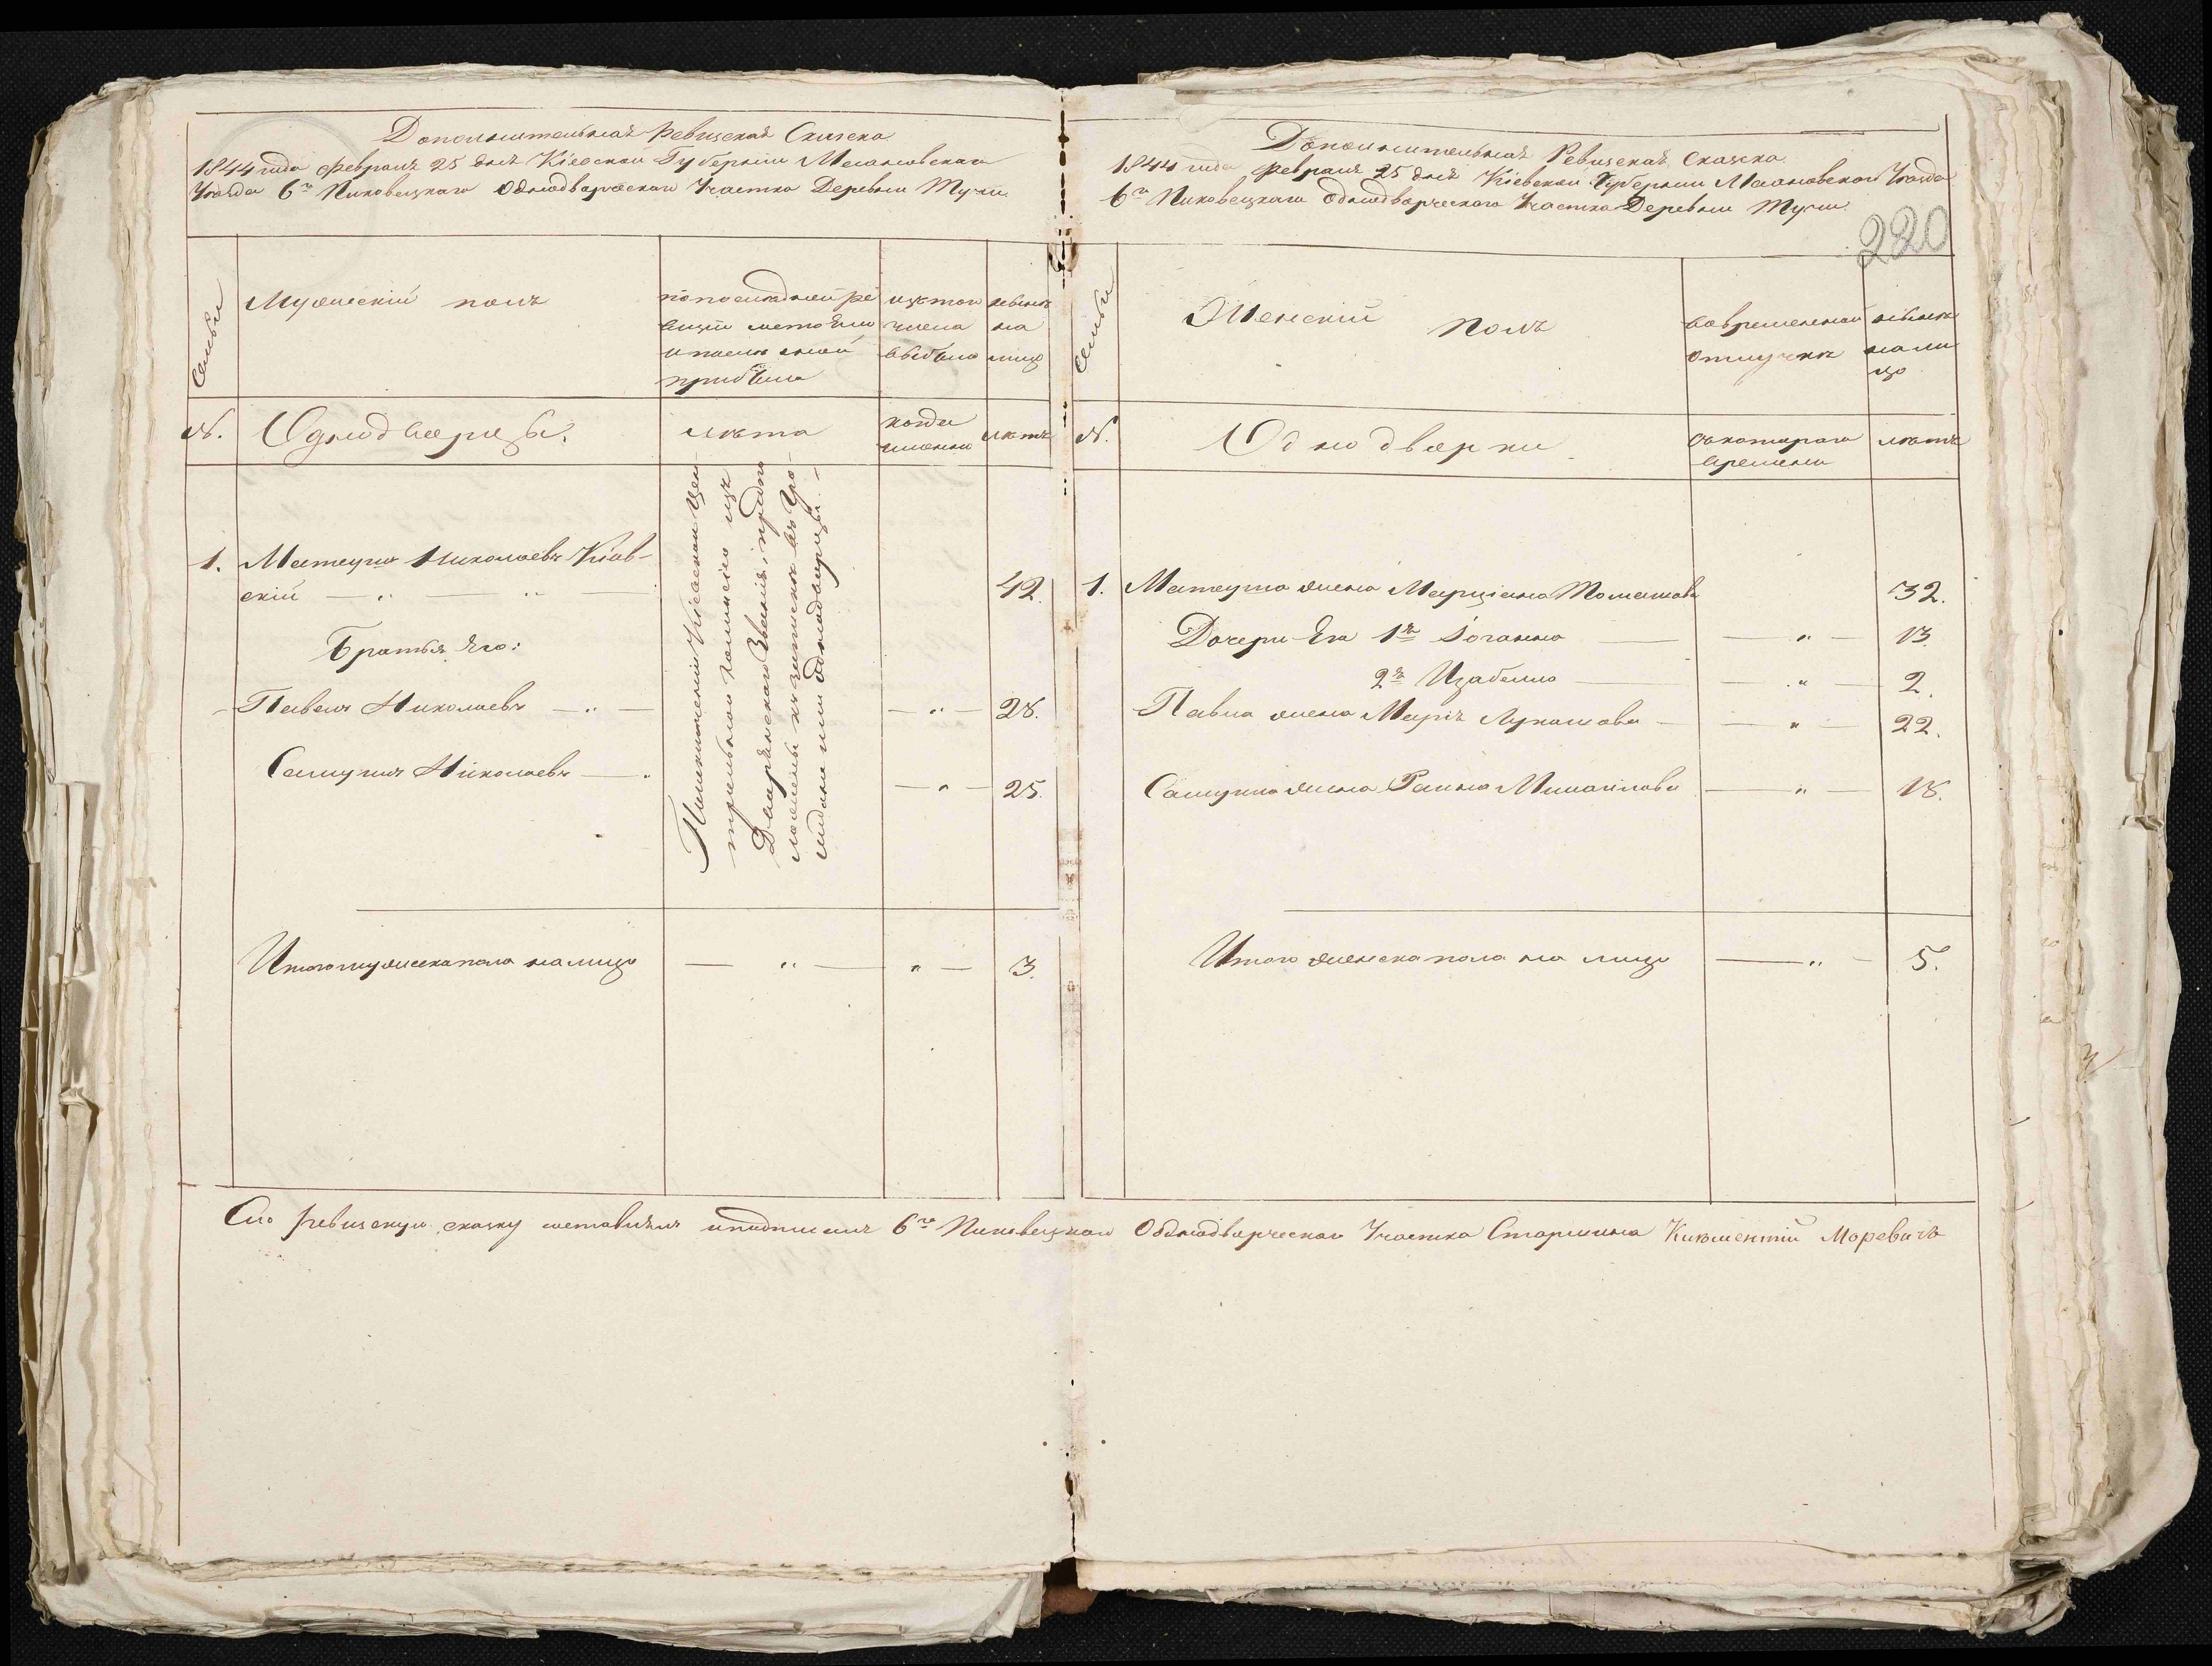 Дополнительная Ревизская Сказка
1844 года Февраля 25 дня Кіевской Губерніи Махновскаго
Уѣзда 6го Пиковецкаго Однодворческаго Участка Деревни Тучи
Семьи
Мужескій полъ
по последней ре
визіи состояло
и после оной
прибыло
изъ того
числа
выбыло
нынѣ
на
лицо
№.
Однодворцы.
лѣта
когда
именно
лѣтъ
1. Матеушъ Николаевъ Кіев-
скій — „ — „ — 42.
Братья Его:
Павелъ Николаевъ — „ — — „ — 28.
Самуилъ Николаевъ — „ — 25.
Кіевскою Цен-
тральною изъ
Дворянскаго Званія, предпо
въ Гра-
ждане или Однодворцы. —
Итого мужеска пола на лицо — „ — „ — 3.
Дополнительная Ревизская Сказка
1844 года Февраля 25 дня Кіевской Губерніи Махновскаго Уѣзда
6го Пиковецкаго Однодворческаго Участка Деревни Тучи
220
Семьи
Женскій полъ
во временной
отлучкѣ
нынѣ
на ли
цо
№.
Однодворки
съ котораго
времени
лѣтъ
1. Матеуша жена Марціана Томашова 32.
Дочери Его 1я Іоганна — — „ — 13.
2я Изабелла — — „ — 2.
Павла жена Марія Лукашова — — „ — 22.
Самуила жена Михайлова — „ — 18.
Итого женска пола на лицо — „ — 5.
Сію ревизскую сказку составилъ и подписалъ 6го Пиковецкаго Однодворческаго Участка Старшина Моревичъ